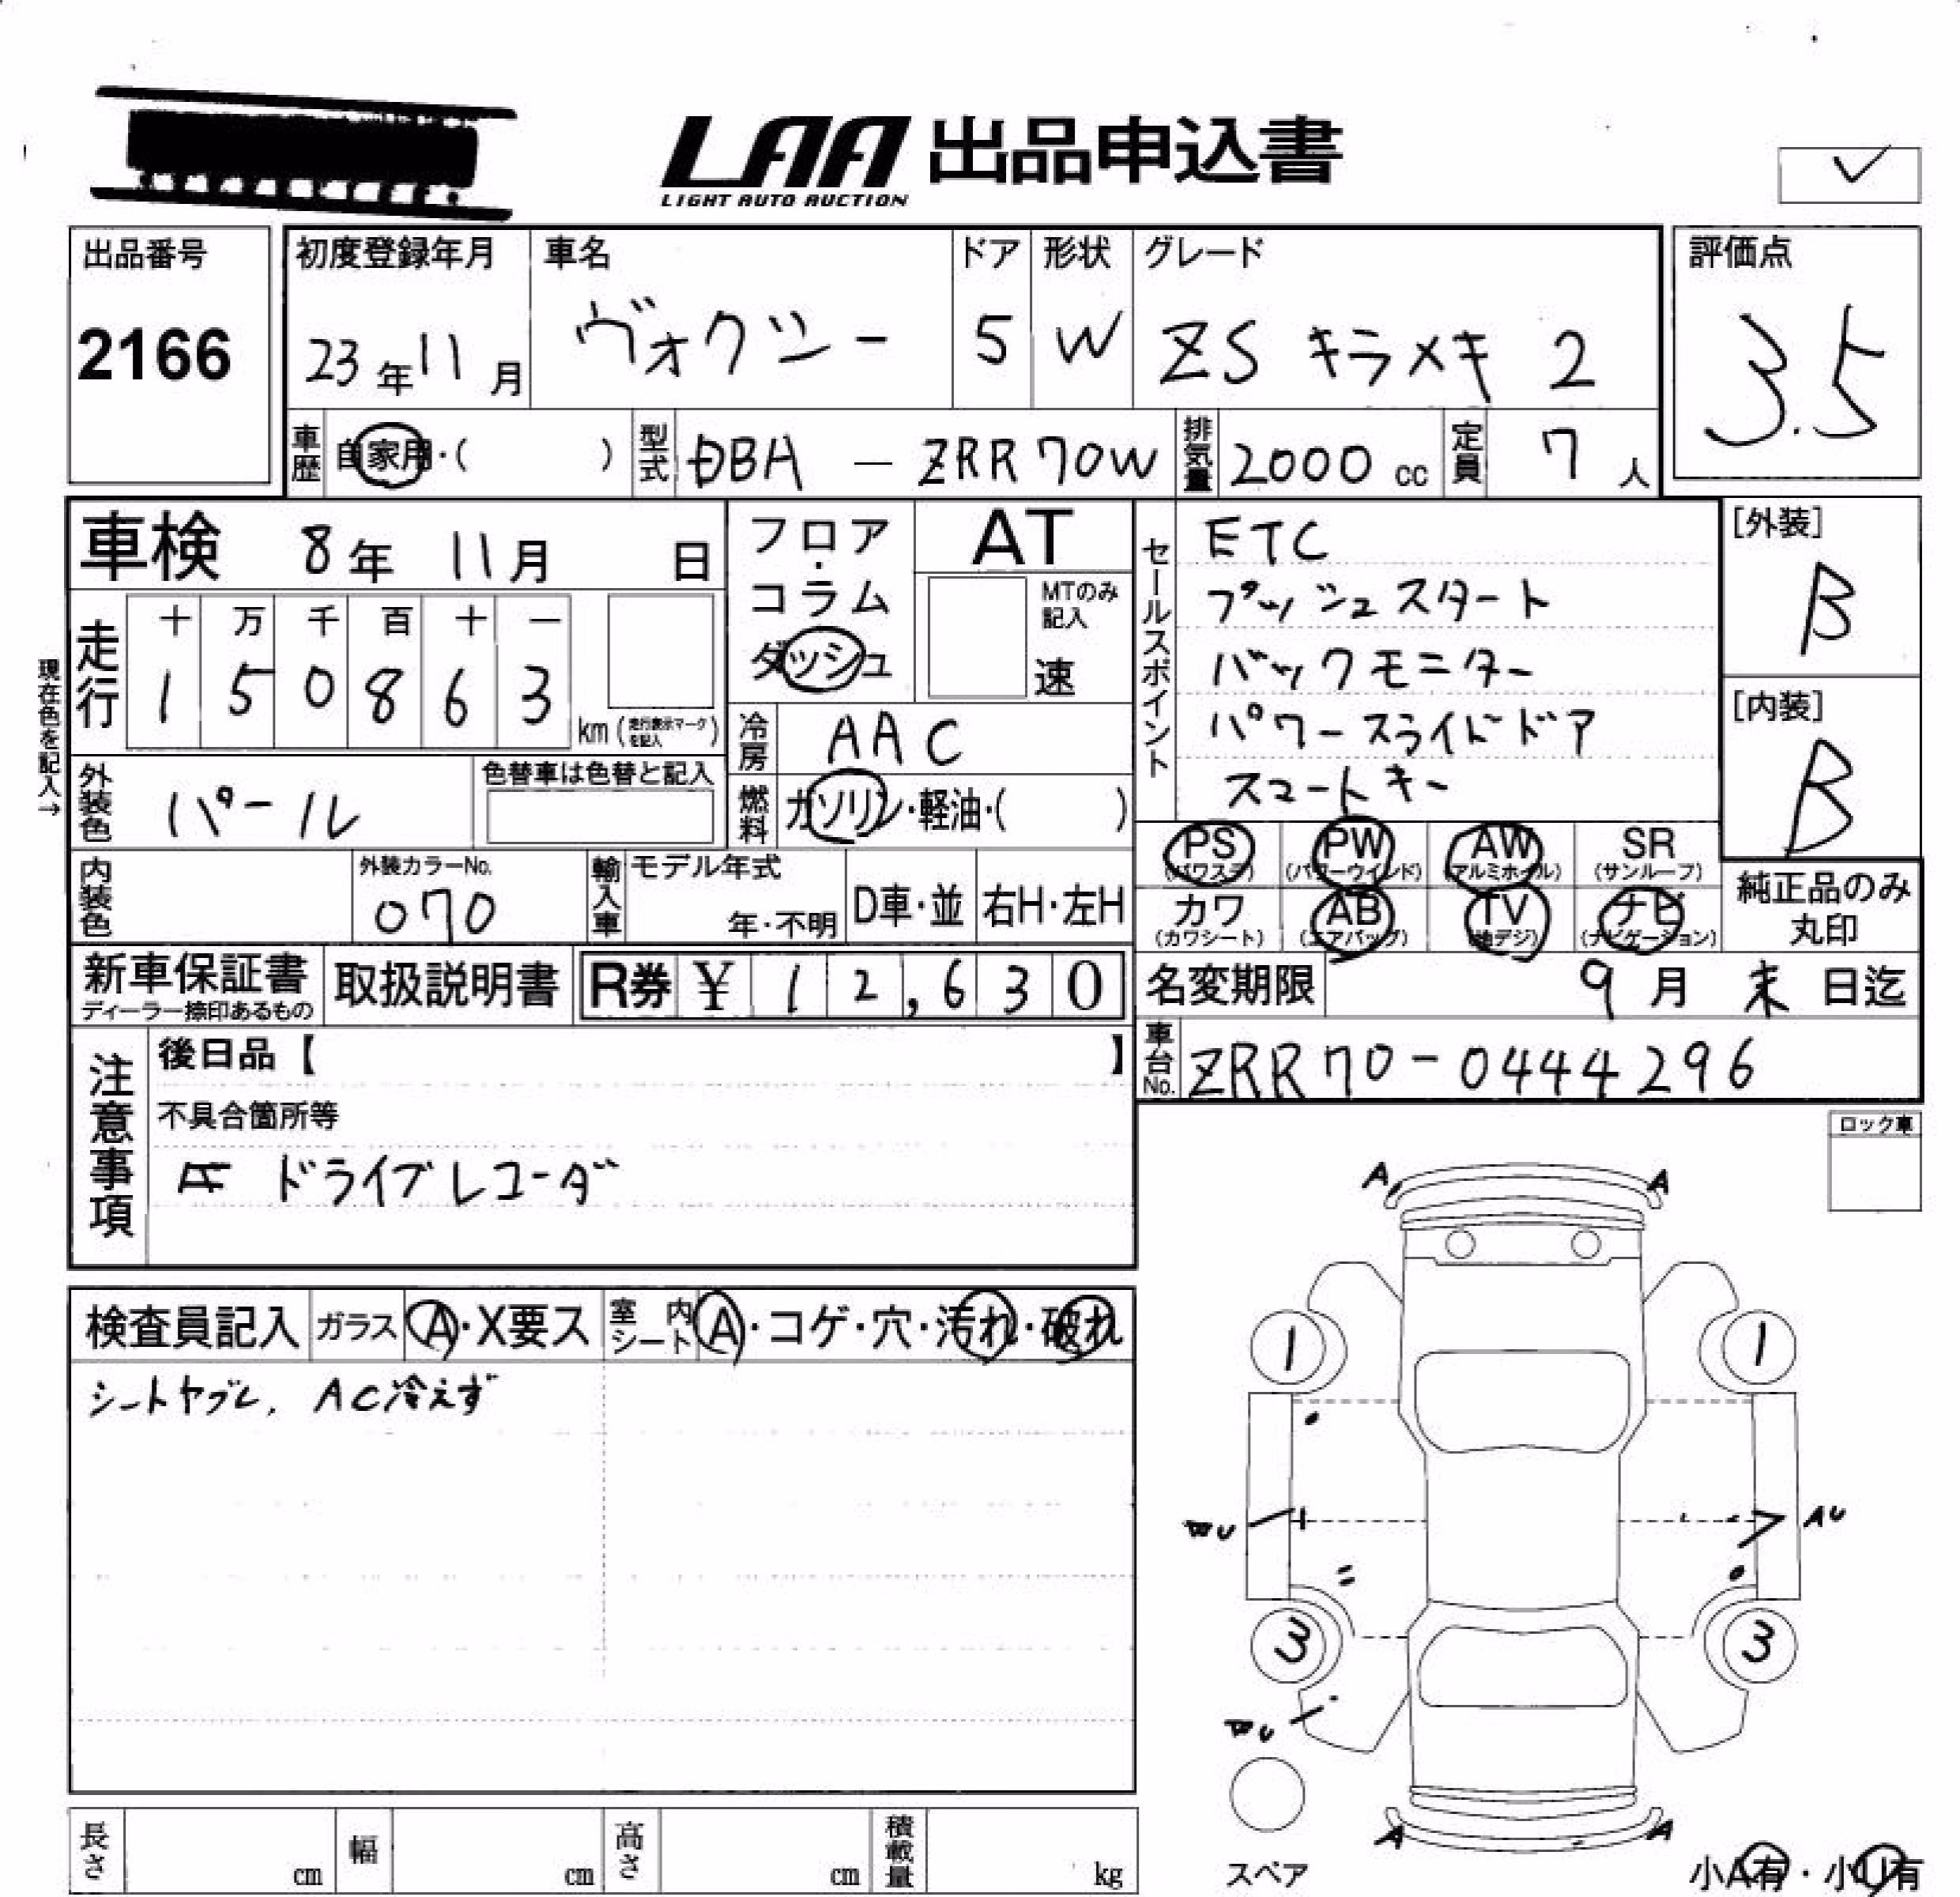 LAA 出品申込書
LIGHT AUTO AUCTION
出品番号
2166
初度登録年月
23年11月
車名
ヴォクシー
ドア
5
形状
W
グレード
ZS キラメキ 2
評価点
3.5
車歴 自家用・( )
型式 DBA － ZRR70W
排気量 2000 cc
定員 7 人
車検 8年 11月 日
現在色を記入→
走行
十 万 千 百 十 一
1 5 0 8 6 3
km (走行表示マークを記入)
フロア・
コラム
ダッシュ
AT
MTのみ記入
速
冷房 AAC
燃料 ガソリン・軽油・( )
セールスポイント
ETC
プッシュスタート
バックモニター
パワースライドドア
スマートキー
[外装]
B
[内装]
B
外装色 パール
色替車は色替と記入
内装色
外装カラーNo.
070
輸入車
モデル年式
年・不明
D車・並
右H・左H
PS
(パワステ)
PW
(パワーウインド)
AW
(アルミホイル)
SR
(サンルーフ)
カワ
(カワシート)
AB
(エアバッグ)
TV
(地デジ)
ナビ
(ナビゲーション)
純正品のみ
丸印
新車保証書
ディーラー捺印あるもの
取扱説明書
R券 ¥ 12,630
名変期限 9月 末 日迄
車台No. ZRR70-0444296
注意事項
後日品【 】
不具合箇所等
ドライブレコーダ
ロック車
検査員記入
ガラス A・X要ス
室内シート A・コゲ・穴・汚れ・破れ
シートヤブレ、AC冷えず
A A
1 1
AU
3 3
A A
スペア
小A有・小U有
長さ cm
幅 cm
高さ cm
積載量 kg